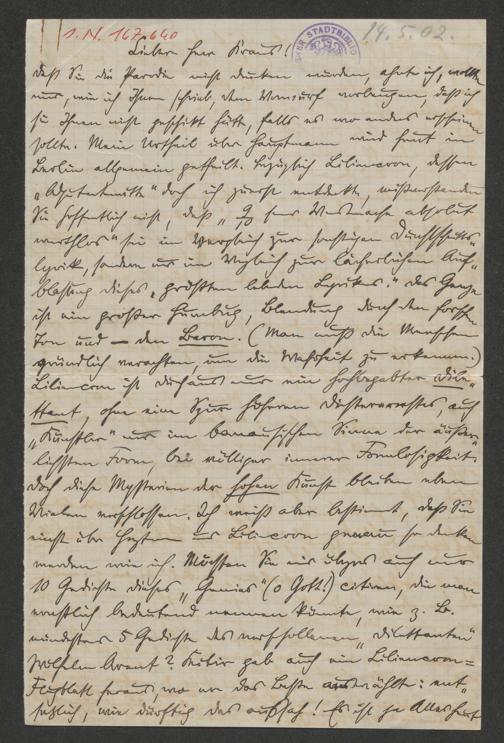 I. N. 167.640
WIENER STADTBIBLIOTHEK
14. 5. 02.
Lieber Herr Kraus!
daß Sie die Parodie nicht drucken würden, ahnte ich, wollte
nur, wie ich Ihnen schrieb, dem Vorwurf vorbeugen, daß ich
sie Ihnen nicht geschickt hätte, falls es wo anders erscheinen
sollte. Mein Urtheil über Hauptmann wird heut in
Berlin allgemein getheilt. Bezüglich Liliencron, dessen
„Adjutantenritte“ doch ich zuerst entdeckte, mißverstanden
Sie hoffentlich nicht, daß „9/10 seiner Mache absolut
werthlos“ sei im Vergleich zur sonstigen Durchschnitts-
lyrik, sondern nur im Vergleich zur lächerlichen Auf-
blasung dieses „größten lebenden Lyrikers.“ Das Ganze
ist ein großer Humbug, Blendung durch den forschen
Ton und — den Baron. (Man muß die Menschen
gründlich verachten, um die Wahrheit zu erkennen.)
Liliencron ist durchaus nur ein hochbegabter Dile-
ttant, ohne eine Spur höheren, auch
„Künstler“ nur im banausischen Sinne der äußer-
lichsten Form, bei völliger innerer Formlosigkeit.
Doch diese Mysterien der hohen Kunst bleiben eben
Vielen verschlossen. Ich weiß aber bestimmt, daß Sie
nicht über Liliencron genau so denken
werden wie ich. Möchten Sie mir übrigens auch nur
10 Gedichte dieses „Genies“ (o Gott!) citiren, die man
ernstlich bedeutend nennen könnte, wie z. B.
mindestens 5 Gedichte des verschollenen „Dilettanten“
Wilhelm Arent? Kürzlich gab auch ein Liliencron-
Flugblatt heraus, wo er das Beste auswählte: ent-
setzlich, wie dürftig das aussah! Es ist ja Alles heut